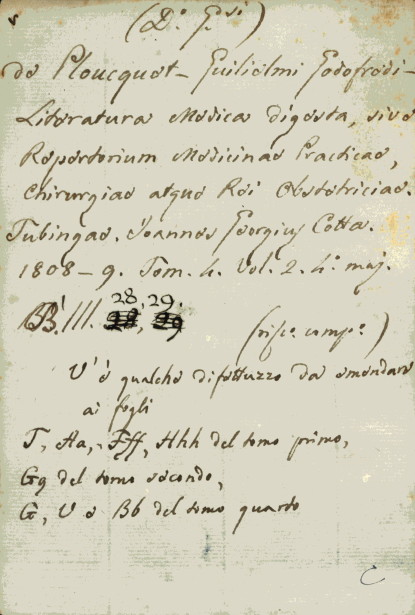 (D.º G.si)
de Ploucquet- Guilielmi Godofredi-
Literatura Medica digesta, sive
Repertorium Medicinae Practicae,
Chirurgiae atque Rei Obstetriciae.
Tubingae. Joannes Georgius Cotta.
1808-9. Tom. 4. Vol. 2. 4.º maj.
28, 29.
BB. III. 28, 29
(risc.º camp.º)
V'è qualche difettuzzo da emendare
ai fogli
T, Aa,- Fff, Hhh del tomo primo,
Gg del tomo secondo,
G, V e Bb del tomo quarto